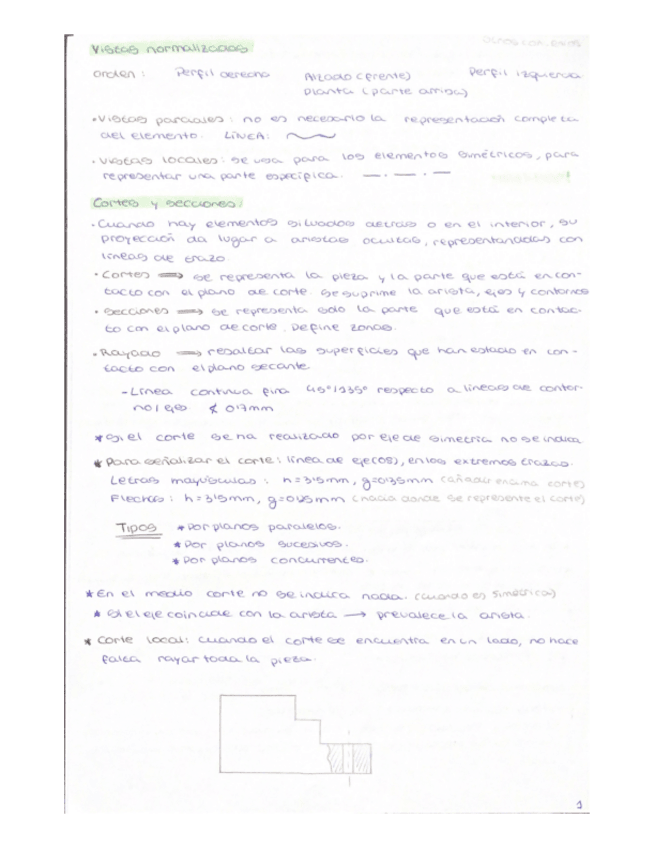 Vistas normalizadas
orden: Perfil derecho Alzado (frente) Perfil izquierda
planta (parte arriba)
• Vistas parciales: no es necesario la representación completa
del elemento. LÍNEA:
• Vistas locales: se usa para los elementos simétricos, para
representar una parte específica.
Cortes y secciones:
• Cuando hay elementos situados detrás o en el interior, su
proyección da lugar a aristas ocultas, representandolas con
líneas de trazo.
• Cortes ⟹ se representa la pieza y la parte que está en con-
tacto con el plano de corte. Se suprime la arista, ejes y contornos
• Secciones ⟹ se representa solo la parte que está en contac-
to con el plano de corte. Define zonas.
• Rayado ⟹ resaltar las superficies que han estado en con-
tacto con el plano secante.
- Línea continua fina 45°/135° respecto a líneas de contor-
no/ejes ≮ 0'7mm
* Si el corte se ha realizado por eje de simetría no se indica
* Para señalizar el corte: línea de eje(os), en los extremos trazos.
Letras mayúsculas: h=3'5mm, g=0'35mm (añadir encima corte)
Flechas: h=3'5mm, g=0'25mm (hacia donde se represente el corte)
Tipos * Por planos paralelos.
* Por planos sucesivos.
* Por planos concurrentes.
* En el medio corte no se indica nada. (cuando es simétrica)
* Si el eje coincide con la arista → prevalece la arista.
* Corte local: cuando el corte se encuentra en un lado, no hace
falta rayar toda la pieza.
1